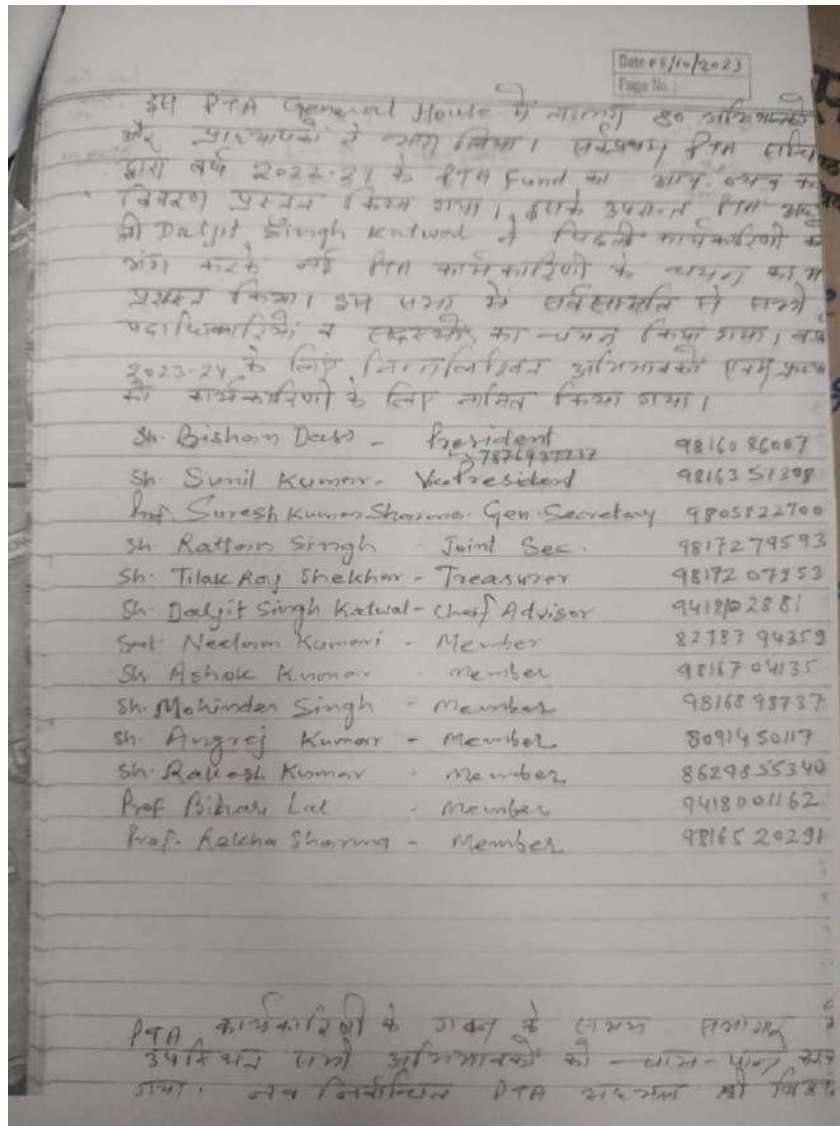 Date 08/10/2023
Page No.:
इस PTA General House में लगभग 80 अभिभावकों
और प्राध्यापकों ने भाग लिया। सर्वप्रथम PTA सचिव
द्वारा वर्ष 2022-23 के PTA Fund का आय-व्यय का
विवरण प्रस्तुत किया गया। इसके उपरान्त PTA
श्री Daljit Singh Katwal ने पिछली कार्यकारिणी को
भंग करके नई PTA कार्यकारिणी के चयन का
प्रशस्त किया। इस सभा में सर्वसम्मति से सभी
पदाधिकारियों व सदस्यों का चयन किया गया। वर्ष
2023-24 के लिए निम्नलिखित अभिभावकों एवम्
को कार्यकारिणी के लिए नामित किया गया।
Sh. Bishan Dass - President 9816086007
7876937737
Sh. Sunil Kumar - Vice President 9816351308
Prof. Suresh Kumar Sharma - Gen. Secretary 9805822700
Sh. Rattan Singh - Joint Sec. 9817279593
Sh. Tilak Raj Shekhar - Treasurer 98172 07953
Sh. Daljit Singh Katwal - Chief Advisor 9418102881
Smt. Neelam Kumari - Member 82787 94359
Sh. Ashok Kumar - Member 98167 04135
Sh. Mohinder Singh - Member 98168 98737
Sh. Angrej Kumar - Member 80914 50117
Sh. Rakesh Kumar - Member 8629855340
Prof Bihari Lal - Member 9418001162
Prof. Rekha Sharma - Member 98165 20291
PTA कार्यकारिणी के गठन के समय सभागार में
उपस्थित सभी अभिभावकों को चाय-पान
गया। नव निर्वाचित PTA अध्यक्ष श्री